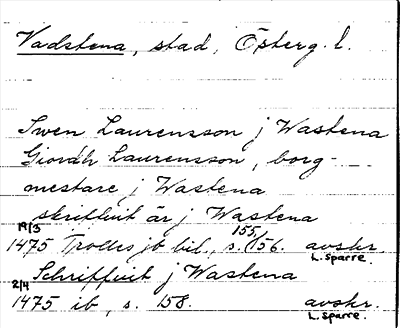 Vadstena, stad, Österg. l.
Swen Laurensson j Wastena
Giordh Laurensson, borg-
mestare j Wastena
skriffuit är j Wastena
19/3
1475 Trolles jb bil., s. 155, 156. avskr.
L. Sparre.
Schriffuit j Wastena
2/4
1475 ib., s. 158. avskr.
L. Sparre.